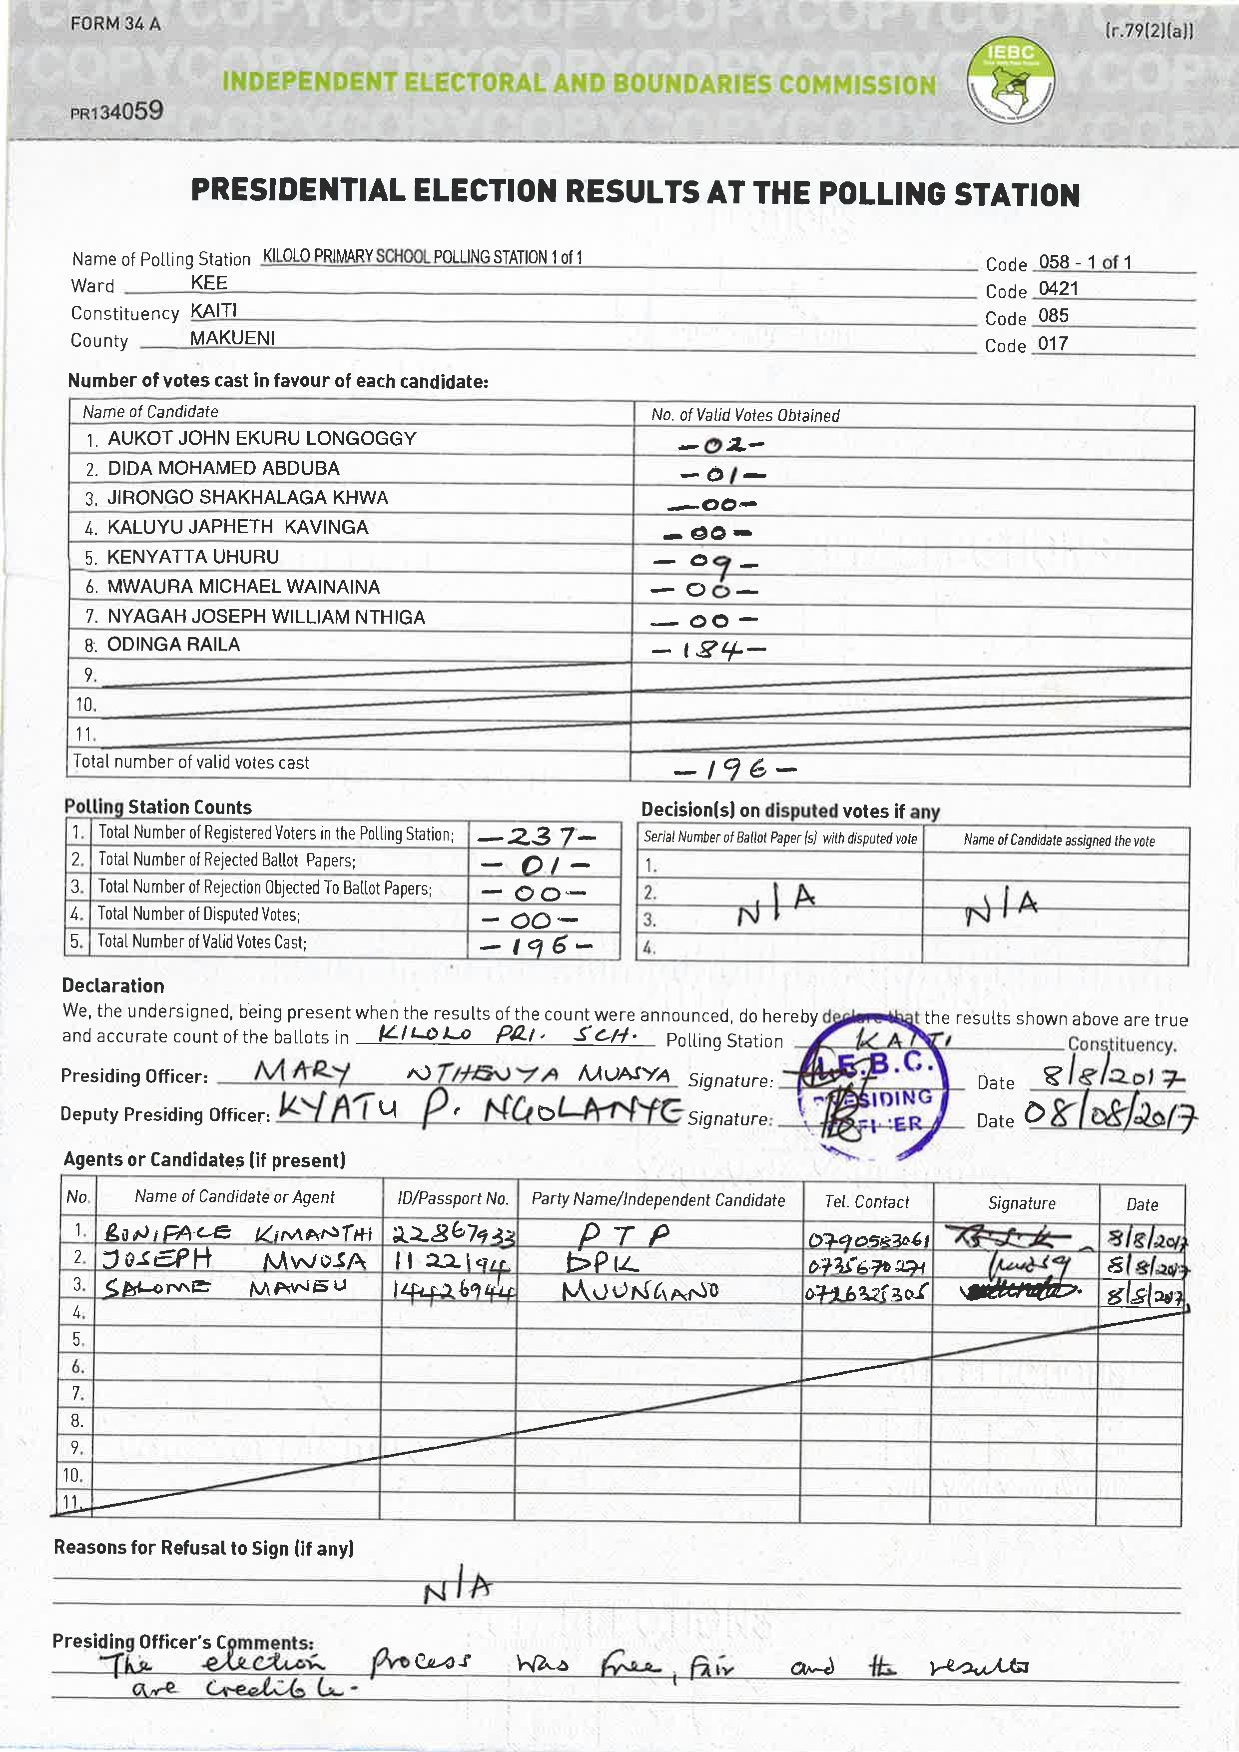 FORM 34 A
(r.79(2)(a))
INDEPENDENT ELECTORAL AND BOUNDARIES COMMISSION
IEBC
PR134059
PRESIDENTIAL ELECTION RESULTS AT THE POLLING STATION
Name of Polling Station KILOLO PRIMARY SCHOOL POLLING STATION 1 of 1 Code 058 - 1 of 1
Ward KEE Code 0421
Constituency KAITI Code 085
County MAKUENI Code 017
Number of votes cast in favour of each candidate:
Name of Candidate No. of Valid Votes Obtained
1. AUKOT JOHN EKURU LONGOGGY -02-
2. DIDA MOHAMED ABDUBA -01-
3. JIRONGO SHAKHALAGA KHWA -00-
4. KALUYU JAPHETH KAVINGA -00-
5. KENYATTA UHURU -09-
6. MWAURA MICHAEL WAINAINA -00-
7. NYAGAH JOSEPH WILLIAM NTHIGA -00-
8. ODINGA RAILA -184-
9.
10.
11.
Total number of valid votes cast -196-
Polling Station Counts
1. Total Number of Registered Voters in the Polling Station; -237-
2. Total Number of Rejected Ballot Papers; -01-
3. Total Number of Rejection Objected To Ballot Papers; -00-
4. Total Number of Disputed Votes; -00-
5. Total Number of Valid Votes Cast; -196-
Decision(s) on disputed votes if any
Serial Number of Ballot Paper (s) with disputed vote Name of Candidate assigned the vote
1.
2. N/A N/A
3.
4.
Declaration
We, the undersigned, being present when the results of the count were announced, do hereby declare that the results shown above are true
and accurate count of the ballots in KILOLO PRI. SCH. Polling Station KAITI Constituency.
Presiding Officer: MARY NTHENYA MUASYA Signature: Date 8/8/2017
Deputy Presiding Officer: KYATU P. NGOLANYE Signature: Date 08/08/2017
I.E.B.C.
Agents or Candidates (if present)
No. Name of Candidate or Agent ID/Passport No. Party Name/Independent Candidate Tel. Contact Signature Date
1. BONIFACE KIMANTHI 22867933 PTP 0790583061 8/8/2017
2. JOSEPH MWOSA 1122194 DPK 0735670271 8/8/2017
3. SALOME MANGU 14426944 MUUNGANO 0726325305 8/8/2017
4.
5.
6.
7.
8.
9.
10.
11.
Reasons for Refusal to Sign (if any)
N/A
Presiding Officer's Comments:
The election process was free, fair and the results
are credible.